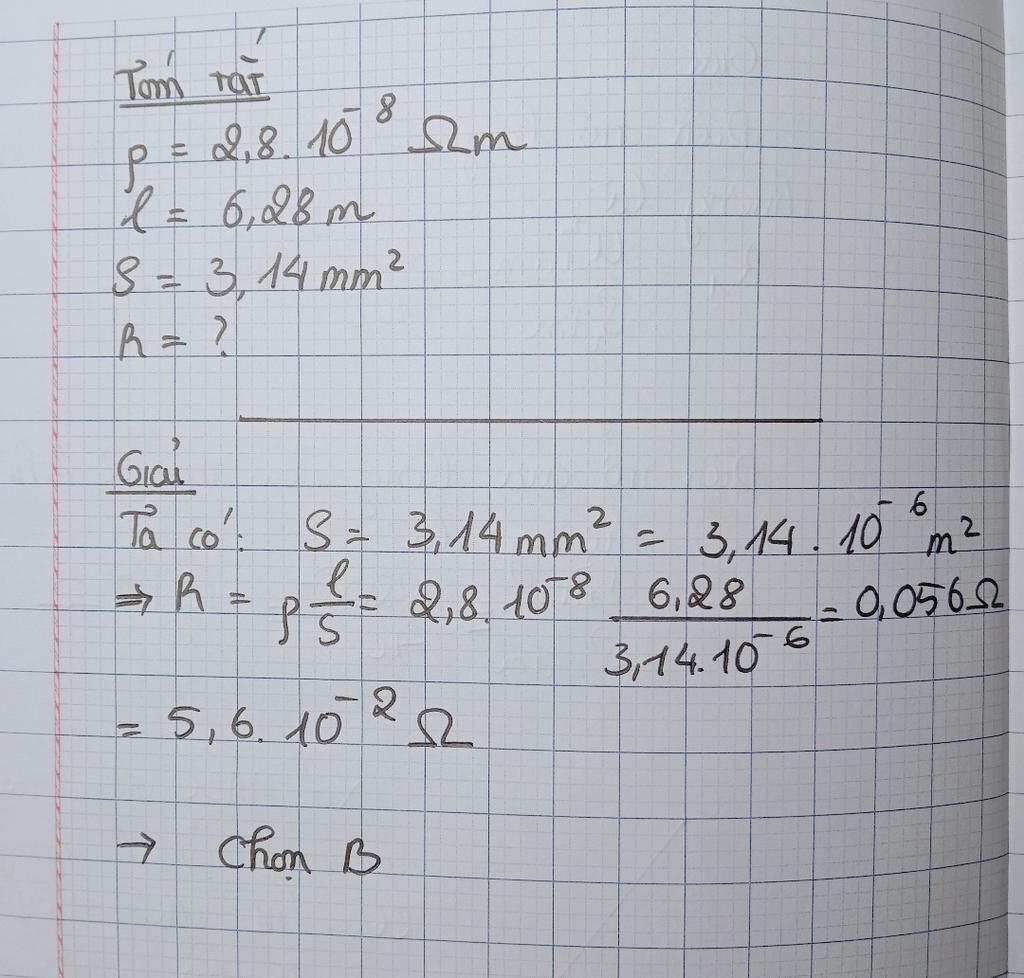 Tóm tắt
ρ = 2,8. 10⁻⁸ Ωm
l = 6,28 m
S = 3,14 mm²
R = ?
Giải
Ta có: S = 3,14 mm² = 3,14 . 10⁻⁶ m²
⇒ R = ρ l/S = 2,8. 10⁻⁸ 6,28/3,14.10⁻⁶ = 0,056Ω
= 5,6. 10⁻² Ω
→ Chọn B